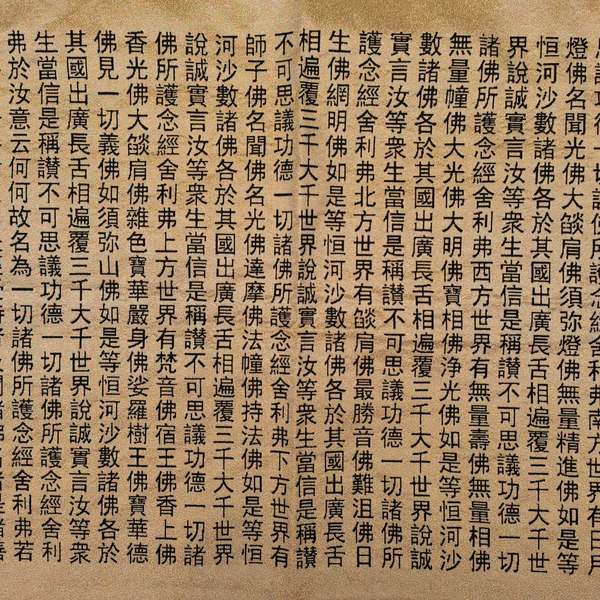 議功德一切諸佛所護念經舍利弗南方世界有日月
燈佛名聞光佛大燄肩佛須弥燈佛無量精進佛如是等
恒河沙數諸佛各於其國出廣長舌相遍覆三千大千世
界說誠實言汝等衆生當信是稱讃不可思議功德一切
諸佛所護念經舍利弗西方世界有無量壽佛無量相佛
無量幢佛大光佛大明佛寶相佛浄光佛如是等恒河沙
數諸佛各於其國出廣長舌相遍覆三千大千世界說誠
實言汝等衆生當信是稱讃不可思議功德一切諸佛所
護念經舍利弗北方世界有燄肩佛最勝音佛難沮佛日
生佛網明佛如是等恒河沙數諸佛各於其國出廣長舌
相遍覆三千大千世界說誠實言汝等衆生當信是稱讃
不可思議功德一切諸佛所護念經舍利弗下方世界有
師子佛名聞佛名光佛達摩佛法幢佛持法佛如是等恒
河沙數諸佛各於其國出廣長舌相遍覆三千大千世界
說誠實言汝等衆生當信是稱讃不可思議功德一切諸
佛所護念經舍利弗上方世界有梵音佛宿王佛香上佛
香光佛大燄肩佛雜色寶華嚴身佛娑羅樹王佛寶華德
佛見一切義佛如須弥山佛如是等恒河沙數諸佛各於
其國出廣長舌相遍覆三千大千世界說誠實言汝等衆
生當信是稱讃不可思議功德一切諸佛所護念經舍利
弗於汝意云何何故名為一切諸佛所護念經舍利弗若